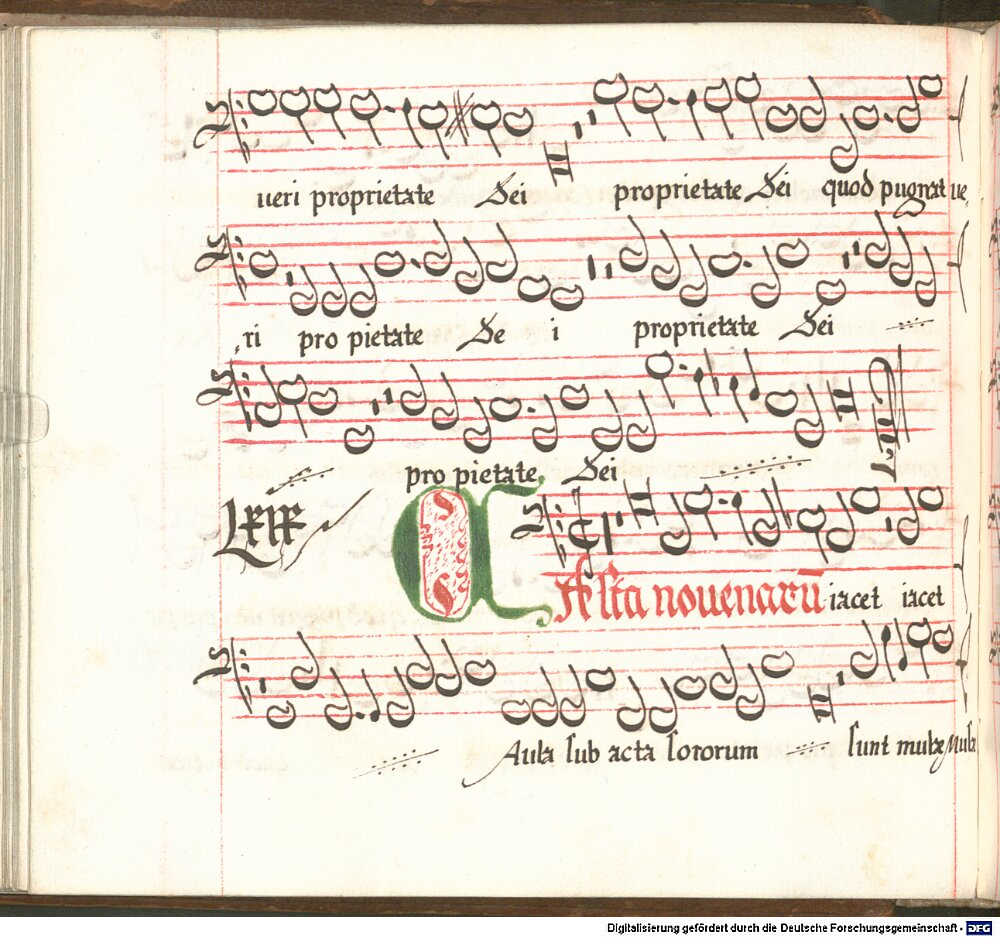 ueri proprietate Dei proprietate Dei quod pugnat ue
ri pro pietate De i proprietate Dei
pro pietate Dei
LXIX
CAsta nouenarū iacet iacet
Aula sub acta sororum sunt mulæ Mulæ
Digitalisierung gefördert durch die Deutsche Forschungsgemeinschaft - DFG